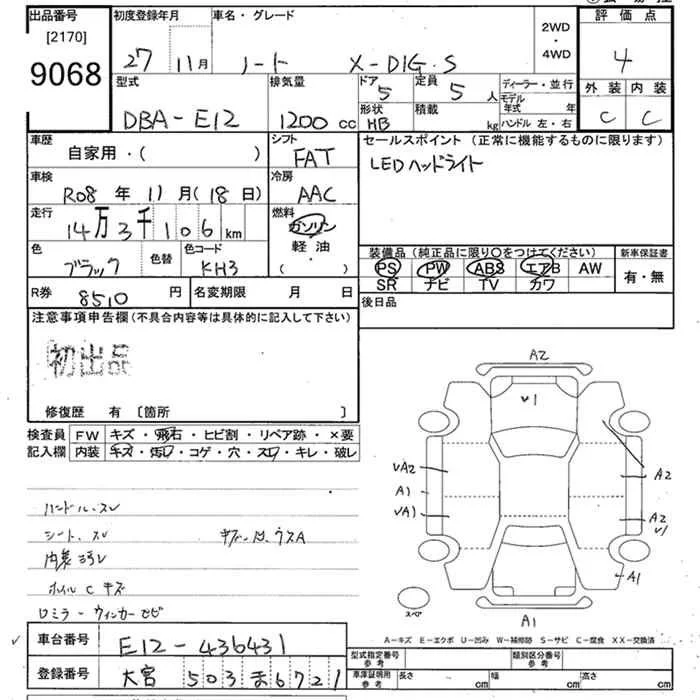 出品番号
[2170]
9068
初度登録年月
27 11月
車名・グレード
ノート X-DIG.S
2WD
・
4WD
評価点
4
外装 内装
C C
型式
DBA-E12
排気量
1200 cc
ドア
5
定員
5 人
形状
HB
積載
kg
ディーラー・並行
モデル年式 年
ハンドル 左・右
車歴
自家用・( )
シフト
FAT
セールスポイント(正常に機能するものに限ります)
LEDヘッドライト
車検
R08年 11月(18日)
冷房
AAC
走行
14万3千106km
燃料
ガソリン
軽油
・
( )
色
ブラック
色替
色コード
KH3
装備品(純正品に限り○をつけてください)
PS PW ABS エアB AW
SR ナビ TV カワ
新車保証書
有・無
R券
8510 円
名変期限 月 日
後日品
注意事項申告欄(不具合内容等は具体的に記入して下さい)
初出品
修復歴 有 〔箇所 〕
検査員
記入欄
FW キズ・飛石・ヒビ割・リペア跡・×要
内装 キズ・汚レ・コゲ・穴・スレ・キレ・破レ
ハンドル・スレ
シート、スレ
内装ヨゴレ
ホイルCキズ
ロミラーウィンカーヒビ
A2
v1
vA2
A1
vA1
A2
A2
v1
A1
A1
スペア
A-キズ E-エクボ U-凹み W-補修跡 S-サビ C-腐食 XX-交換済
車台番号
E12-436431
登録番号
大宮 503 ま 6721
型式指定番号
参考
類別区分番号
参考
車庫証明用
参考
長さ cm
幅 cm
高さ cm